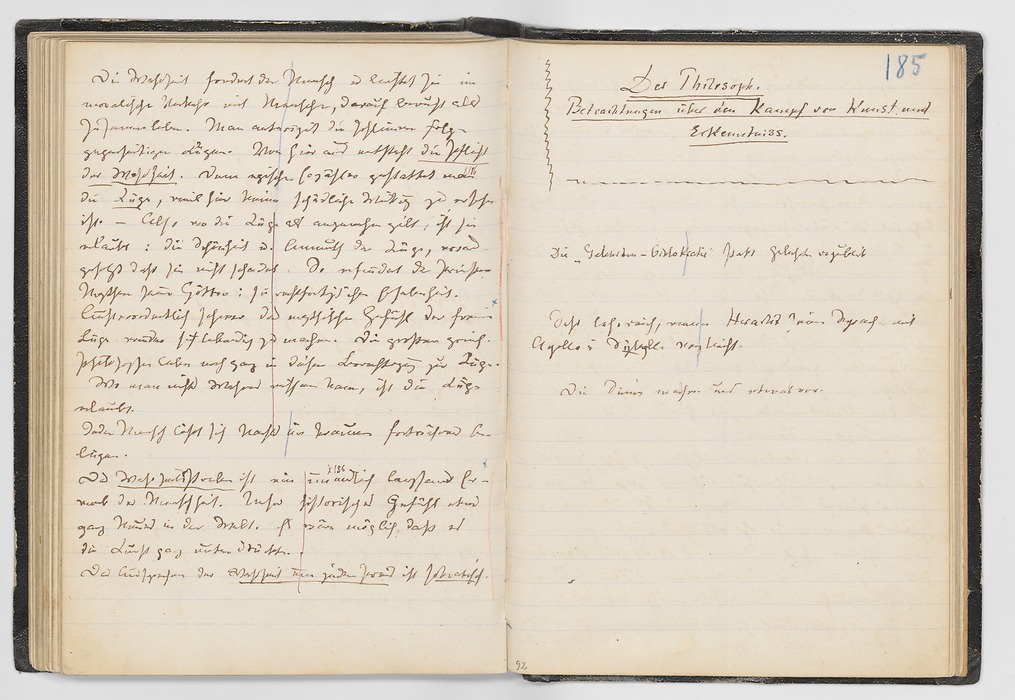 Die Wahrheit fordert der Mensch u leistet sie im
moralischen Verkehr mit Menschen, darauf beruht alles
Zusammenleben. Man anticipirt die schlimmen Folgen
gegenseitiger Lügen. Von hier aus entsteht die Pflicht
der Wahrheit. Dem epischen Erzähler gestattet man
die Lüge, weil hier keine schädliche Wirkung zu ersehen
ist. — Also wo die Lüge als angenehm gilt, ist sie
erlaubt: die Schönheit u. Anmuth der Lüge, voraus-
gesetzt daß sie nicht schadet. So erfindet der Priester
Mythen seiner Götter: sie rechtfertigt ihre Erhabenheit.
Außerordentlich schwer das mythische Gefühl der freien
Lüge wieder sich lebendig zu machen. Die großen griech.
Philosophen leben noch ganz in dieser Berechtigung zur Lüge.
Wo man nichts Wahres wissen kann, ist die Lüge
erlaubt.
Jeder Mensch läßt sich Nachts im Traume fortwährend be-
lügen.
186
Das Wahrheitsstreben ist ein unendlich langsamer Er-
werb der Menschheit. Unser historisches Gefühl etwas
ganz Neues in der Welt. Es wäre möglich, daß es
die Kunst ganz unterdrückte.
Das Aussprechen der Wahrheit um jeden Preis ist sokratisch.
185
Der Philosoph.
Betrachtungen über den Kampf von Kunst und
Erkenntniss.
Die „Gelehrten-Aristokratie" statt Gelehrtenrepublik
Sehr lehrreich, wenn Heraklit seine Sprache mit
Apollo u Sibylle vergleicht.
Die Sinne machen uns etwas vor.
92